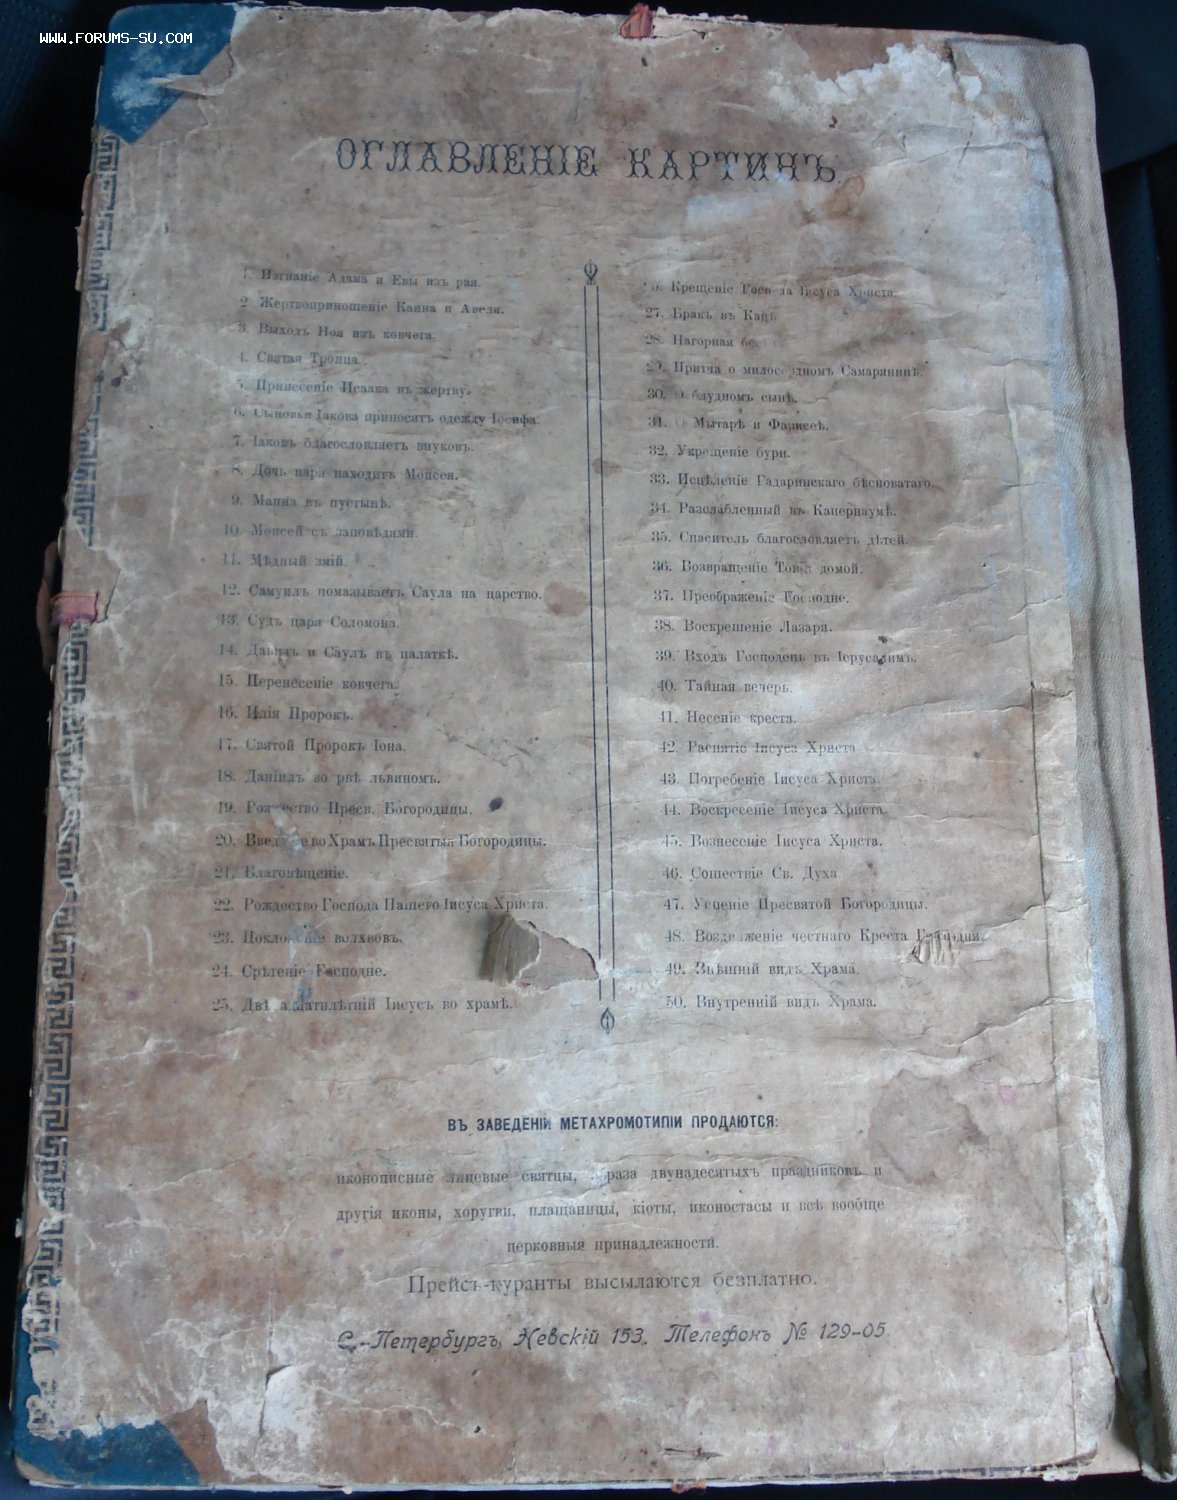 WWW.FORUMS-SU.COM
ОГЛАВЛЕНІЕ КАРТИНЪ.
1. Изгнаніе Адама и Евы изъ рая.
2 Жертвоприношеніе Каина и Авеля.
3. Выходъ Ноя изъ ковчега.
4. Святая Троица.
5. Принесеніе Исаака въ жертву.
6. Сыновья Іакова приносятъ одежду Іосифа.
7. Іаковъ благословляетъ внуковъ.
8. Дочь царя находитъ Моисея.
9. Манна въ пустынѣ.
10. Моисей съ заповѣдями.
11. Мѣдный змій.
12. Самуилъ помазываетъ Саула на царство.
13. Судъ царя Соломона.
14. Давидъ и Саулъ въ палаткѣ.
15. Перенесеніе ковчега.
16. Илія Пророкъ.
17. Святой Пророкъ Іона.
18. Даніилъ во рвѣ львиномъ.
19. Рождество Пресв. Богородицы.
20. во Храмъ Пресвятыя Богородицы.
21. Благовѣщеніе.
22. Рождество Господа Нашего Іисуса Христа.
23. волхвовъ.
24. Срѣтеніе Господне.
25. Іисусъ во храмѣ.
Крещеніе Господа Іисуса Христа
27. Бракъ въ Канѣ
28. Нагорная
29. Притча о Самарянинѣ.
30. блудномъ сынѣ.
31. Мытарѣ и Фарисеѣ.
32. Укрощеніе бури.
33. Исцѣленіе Гадаринскаго бѣсноватаго.
34. Разслабленный въ Капернаумѣ.
35. Спаситель благословляетъ дѣтей.
36. Возвращеніе Товія домой.
37. Преображеніе Господне.
38. Воскрешеніе Лазаря.
39. Входъ Господень въ Іерусалимъ.
40. Тайная вечерь.
41. Несеніе креста.
42. Распятіе Іисуса Христа
43. Погребеніе Іисуса Христа.
44. Воскресеніе Іисуса Христа.
45. Вознесеніе Іисуса Христа.
46. Сошествіе Св. Духа
47. Успеніе Пресвятой Богородицы.
48. Воздвиженіе честнаго Креста Господня.
49. Внѣшній видъ Храма.
50. Внутренній видъ Храма.
ВЪ ЗАВЕДЕНІИ МЕТАХРОМОТИПІИ ПРОДАЮТСЯ:
иконописные лицевые святцы, образа двунадесятыхъ праздниковъ и
другія иконы, хоругви, плащаницы, кіоты, иконостасы и всѣ вообще
церковныя принадлежности.
Прейсъ-куранты высылаются безплатно.
С.-Петербургъ, Невскій 153. Телефонъ № 129-05